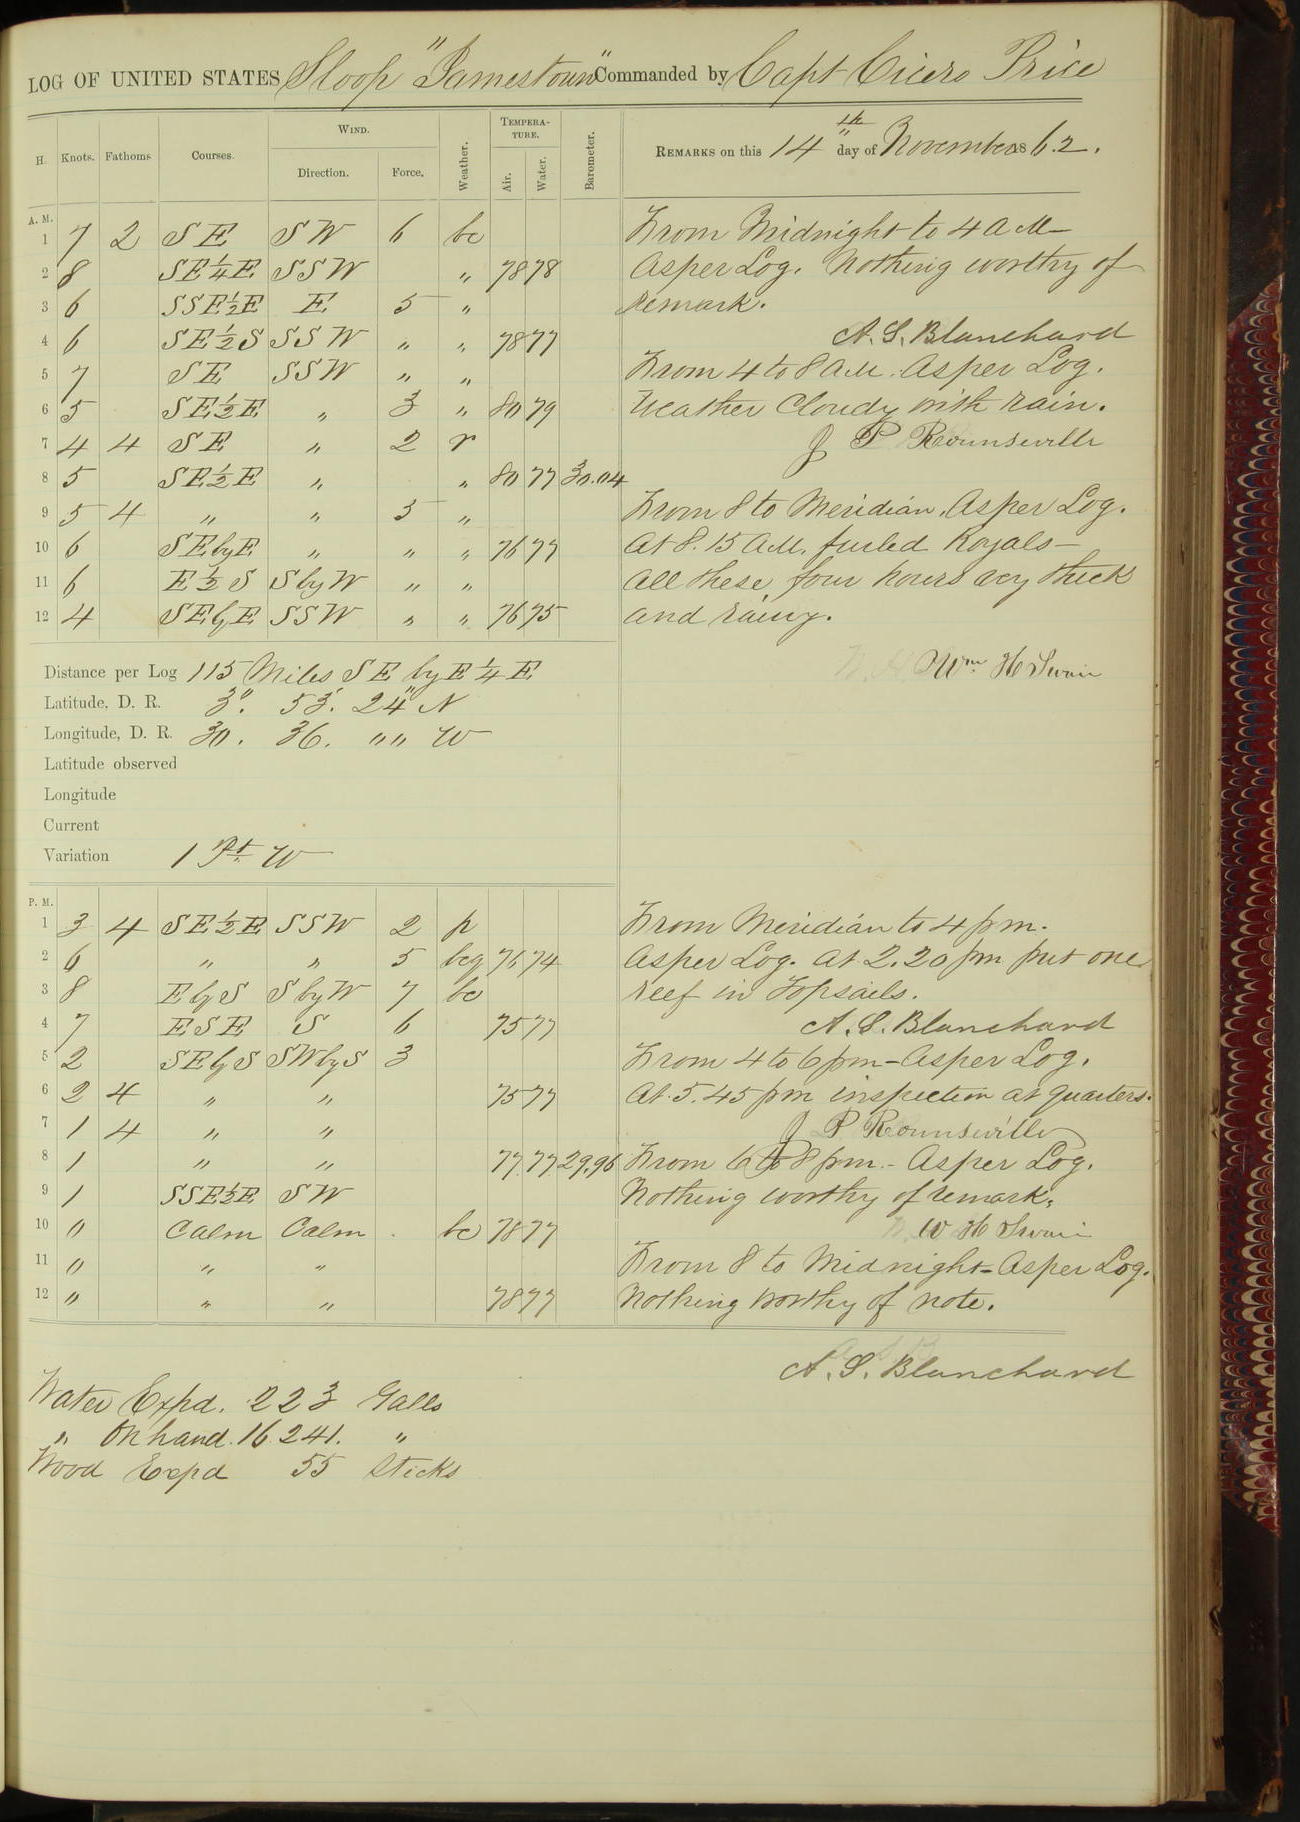 LOG OF UNITED STATES Sloop "Jamestown" Commanded by Capt Cicero Price
H. Knots. Fathoms. Courses. Wind. Direction. Force. Weather. Tempera-ture. Air. Water. Barometer. Remarks on this 14th day of November 1862.
A. M.
1 7 2 SE SW 6 bc From Midnight to 4 AM—
2 8 SE¼E SSW " 78 78 As per Log. Nothing worthy of
3 6 SSE½E E 5 " remark.
4 6 SE½S SSW " " 78 77 A. S. Blanchard
5 7 SE SSW " " From 4 to 8 AM. As per Log.
6 5 SE½E " 3 " 80 79 Weather Cloudy with rain.
7 4 4 SE " 2 r J P Rounseville
8 5 SE½E " " 80 77 30.04
9 5 4 " " 3 " From 8 to Meridian, As per Log.
10 6 SEbyE " " " 76 77 At 8.15 AM, furled Royals—
11 6 E½S SbyW " " All these four hours very thick
12 4 SEbyE SSW " " 76 75 and rainy.
Wm H Swain
Distance per Log 115 Miles SE by E ¼ E
Latitude, D. R. 3°. 53'. 24" N
Longitude, D. R. 30. 36. " " W
Latitude observed
Longitude
Current
Variation 1 Pt. W
P. M.
1 3 4 SE½E SSW 2 p From Meridian to 4 pm.
2 6 " " 5 bcq 76 74 As per Log. At 2.20 pm put one
3 8 EbyS SbyW 7 bc reef in Topsails.
4 7 ESE S 6 75 77 A. S. Blanchard
5 2 SEbyS SWbyS 3 From 4 to 6 pm— As per Log.
6 2 4 " " 75 77 At 5.45 pm inspection at quarters.
7 1 4 " " J P Rounseville
8 1 " " 77 77 29.96 From 6 to 8 pm.- As per Log.
9 1 SSE½E SW Nothing worthy of remark.
10 0 Calm Calm bc 78 77 W H Swain
11 0 " " From 8 to Midnight— As per Log.
12 " " " 78 77 Nothing worthy of note.
A. S. Blanchard
Water Expd. 223 Galls
" On hand. 16 241. "
Wood Expd 55 Sticks